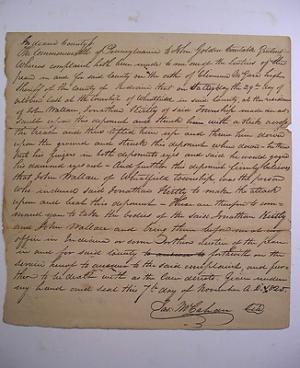 Indiana County ss
The Commonwealth of Pennsylvania to John Golden Constable Greeting
Whereas complaint hath been made to me one of the Justices of the
peace in and for said County on the oath of Clemence McGara high
Sheriff of the County of Indiana that on Saturday the 29th day of
October last at the township of Wheatfield in said County at the residence
of John Wallace, Jonathan Hertly of said Township made an as-
sault upon this deponent and struck him with a stick across
the head and then lifted him up and threw him down
upon the ground and struck this deponent when down
put his finger in both deponents eyes and said he would gouge
his damned eyes out – And further this deponent verily believes
that John Wallace of Wheatfield township was the person
who induced said Jonathan Hertly to make the attack
upon and beat this deponent – These are therefore to com-
mand you to take the bodies of the said Jonathan Hertly
and John Wallace and bring them before me at my
office in Indiana or some other Justice of the peace
in and for said County forthwith on the
service hereof to answer to the said complaint, and fur-
ther to be dealt with as the Law directs. Given under
my hand and seal this 7th day of November A.D. 1825
Jas McCahan